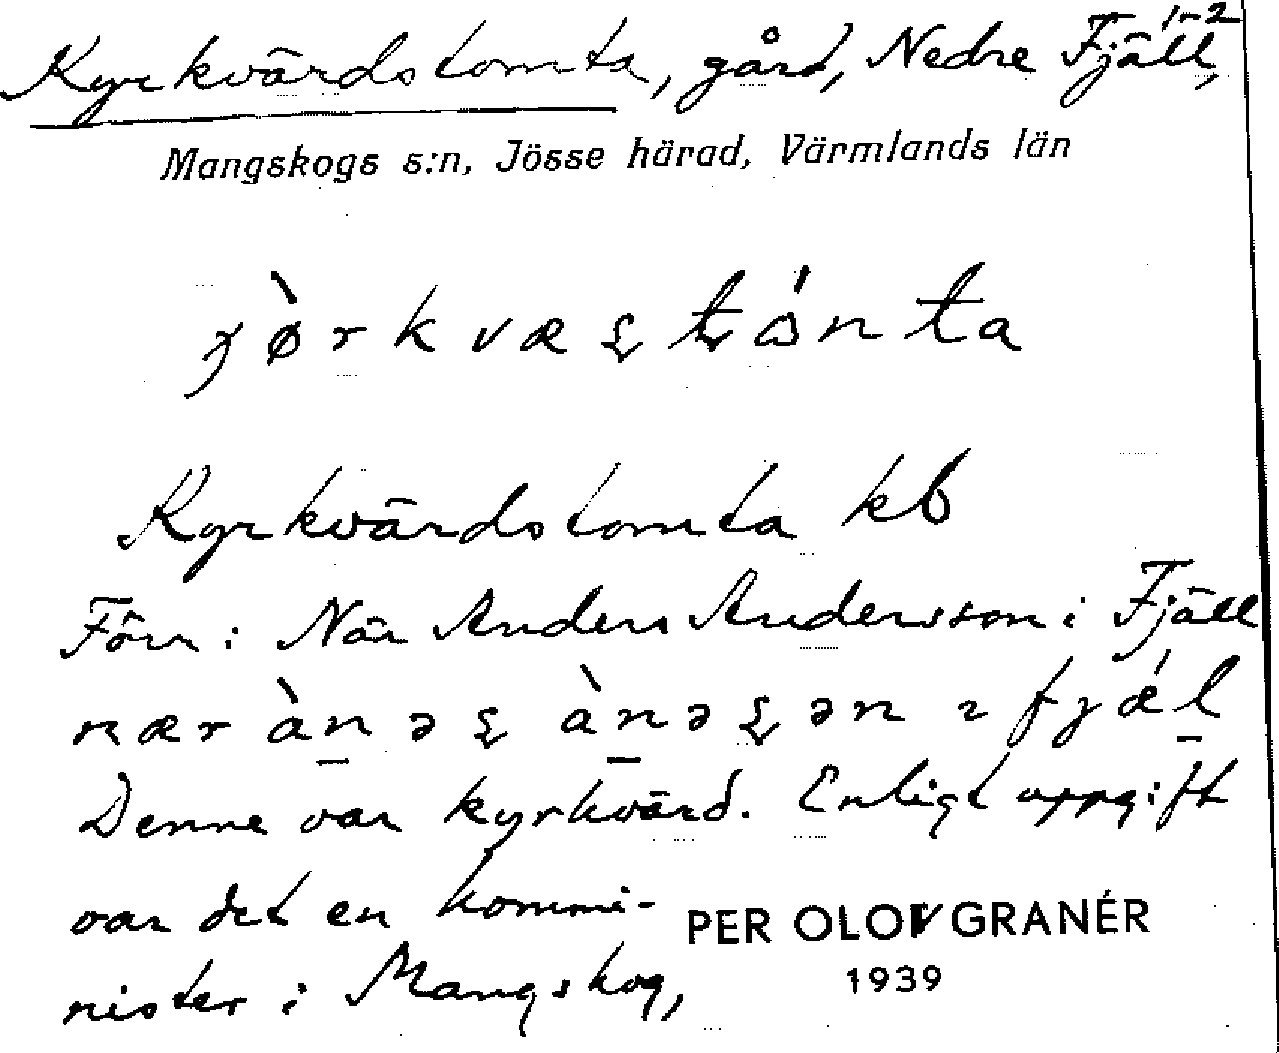 Kyrkvärdstomta, gård, Nedre Fjäll 1-2,
Mangskogs s:n, Jösse härad, Värmlands län
Kyrkvärdstomta kb
Förr: När Anders Andersson i Fjäll
Denne var kyrkvärd. Enligt uppgift
var det en kommi-
nister i Mangskog,
PER OLOV GRANÉR
1939